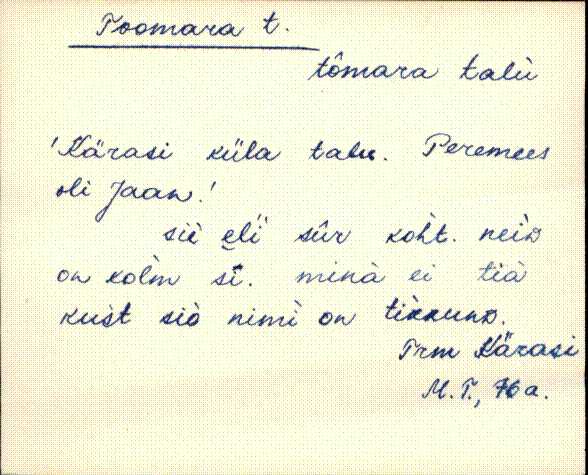 Toomara t.
tômara talù
'Kärasi küla talu. Peremees
oli Jaan.'
siì e̬lì sûr koht. neiD
on kolm sî. minà ei tiä
kust siò nimì on tikkunD.
Trm Kärasi
M.T., 76 a.